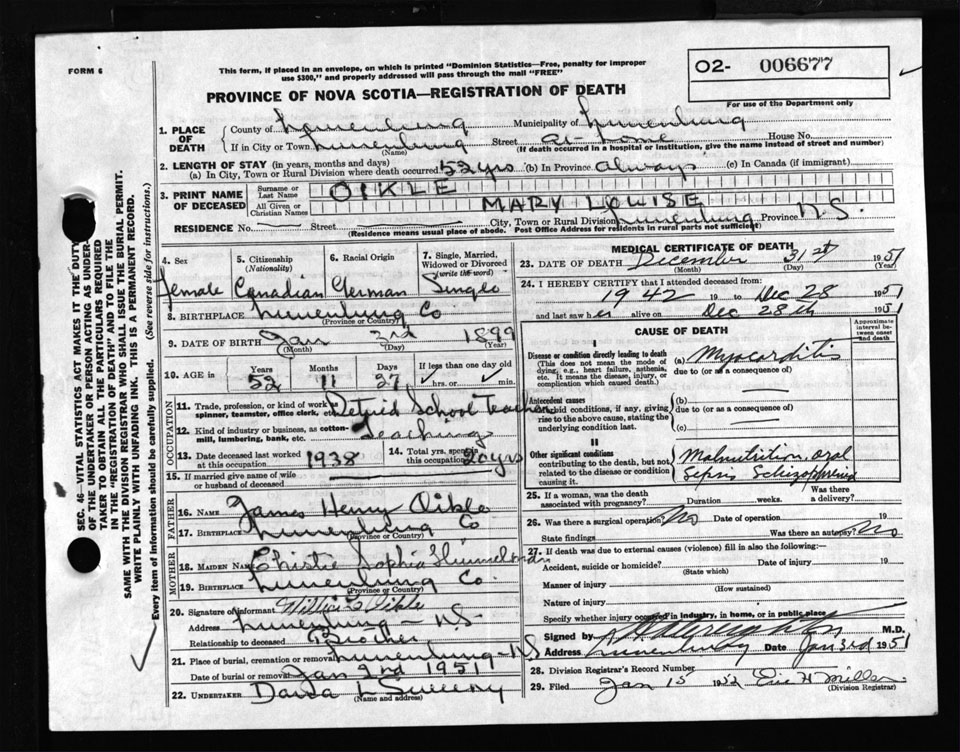 FORM 6
This form, if placed in an envelope, on which is printed "Dominion Statistics—Free, penalty for improper
use $300," and properly addressed will pass through the mail "FREE"
O2- 006677
For use of the Department only
PROVINCE OF NOVA SCOTIA—REGISTRATION OF DEATH
1. PLACE OF DEATH
County of Lunenburg Municipality of Lunenburg
If in City or Town Lunenburg Street at home House No.
(Name) (If death occurred in a hospital or institution, give the name instead of street and number)
2. LENGTH OF STAY (in years, months and days)
(a) In City, Town or Rural Division where death occurred 52 yrs (b) In Province Always (c) In Canada (if immigrant)
3. PRINT NAME OF DECEASED
Surname or Last Name OIKLE
All Given or Christian Names MARY LOUISE
RESIDENCE No. Street City, Town or Rural Division Lunenburg Province N.S.
(Residence means usual place of abode. Post Office Address for residents in rural parts not sufficient)
4. Sex 5. Citizenship (Nationality) 6. Racial Origin 7. Single, Married, Widowed or Divorced (write the word)
Female Canadian German Single
8. BIRTHPLACE Lunenburg Co
(Province or Country)
9. DATE OF BIRTH Jan 3rd 1899
(Month) (Day) (Year)
10. AGE in Years Months Days If less than one day old
52 11 27 hrs. or min.
OCCUPATION
11. Trade, profession, or kind of work as spinner, teamster, office clerk, etc. Retired School Teacher
12. Kind of industry or business, as cotton-mill, lumbering, bank, etc. Teaching
13. Date deceased last worked at this occupation 1938 14. Total yrs. spent in this occupation 20 yrs
15. If married give name of wife or husband of deceased
FATHER
16. NAME James Henry Oikle
17. BIRTHPLACE Lunenburg Co
(Province or Country)
MOTHER
18. MAIDEN NAME Christie Sophia
19. BIRTHPLACE Lunenburg Co.
(Province or Country)
20. Signature of informant Oikle
Address Lunenburg – N.S
Relationship to deceased Brother
21. Place of burial, cremation or removal Lunenburg – N.S
Date of burial or removal Jan 2nd 1951
22. UNDERTAKER Sweeny
(Name and address)
MEDICAL CERTIFICATE OF DEATH
23. DATE OF DEATH December 31st 1951
(Month) (Day) (Year)
24. I HEREBY CERTIFY that I attended deceased from:
1942 19 to Dec 28 1951
and last saw her alive on Dec 28th 1951
CAUSE OF DEATH
Approximate interval between onset and death
I
Disease or condition directly leading to death
(This does not mean the mode of dying, e.g., heart failure, asthenia, etc. It means the disease, injury, or complication which caused death.)
(a) Myocarditis
due to (or as a consequence of)
Antecedent causes
Morbid conditions, if any, giving rise to the above cause, stating the underlying condition last.
(b)
due to (or as a consequence of)
(c)
II
Other significant conditions
contributing to the death, but not related to the disease or condition causing it.
Malnutrition, oral
Sepsis Schizophrenia
25. If a woman, was the death associated with pregnancy? Duration weeks. Was there a delivery?
26. Was there a surgical operation? No Date of operation 19
State findings Was there an autopsy? No
27. If death was due to external causes (violence) fill in also the following:—
Accident, suicide or homicide? Date of injury 19
(State which)
Manner of injury
(How sustained)
Nature of injury
Specify whether injury occurred in industry, in home, or in public place
Signed by M.D.
Address Lunenburg Date Jan 3rd 1951
28. Division Registrar's Record Number
29. Filed Jan 15 1952 Eric H Miller
(Division Registrar)
SEC. 46—VITAL STATISTICS ACT MAKES IT THE DUTY
OF THE UNDERTAKER OR PERSON ACTING AS UNDER-
TAKER TO OBTAIN ALL THE PARTICULARS REQUIRED
IN THE "REGISTRATION OF DEATH" AND TO FILE THE
SAME WITH THE DIVISION REGISTRAR WHO SHALL ISSUE THE BURIAL PERMIT.
WRITE PLAINLY WITH UNFADING INK. THIS IS A PERMANENT RECORD.
Every item of information should be carefully supplied. (See reverse side for instructions.)